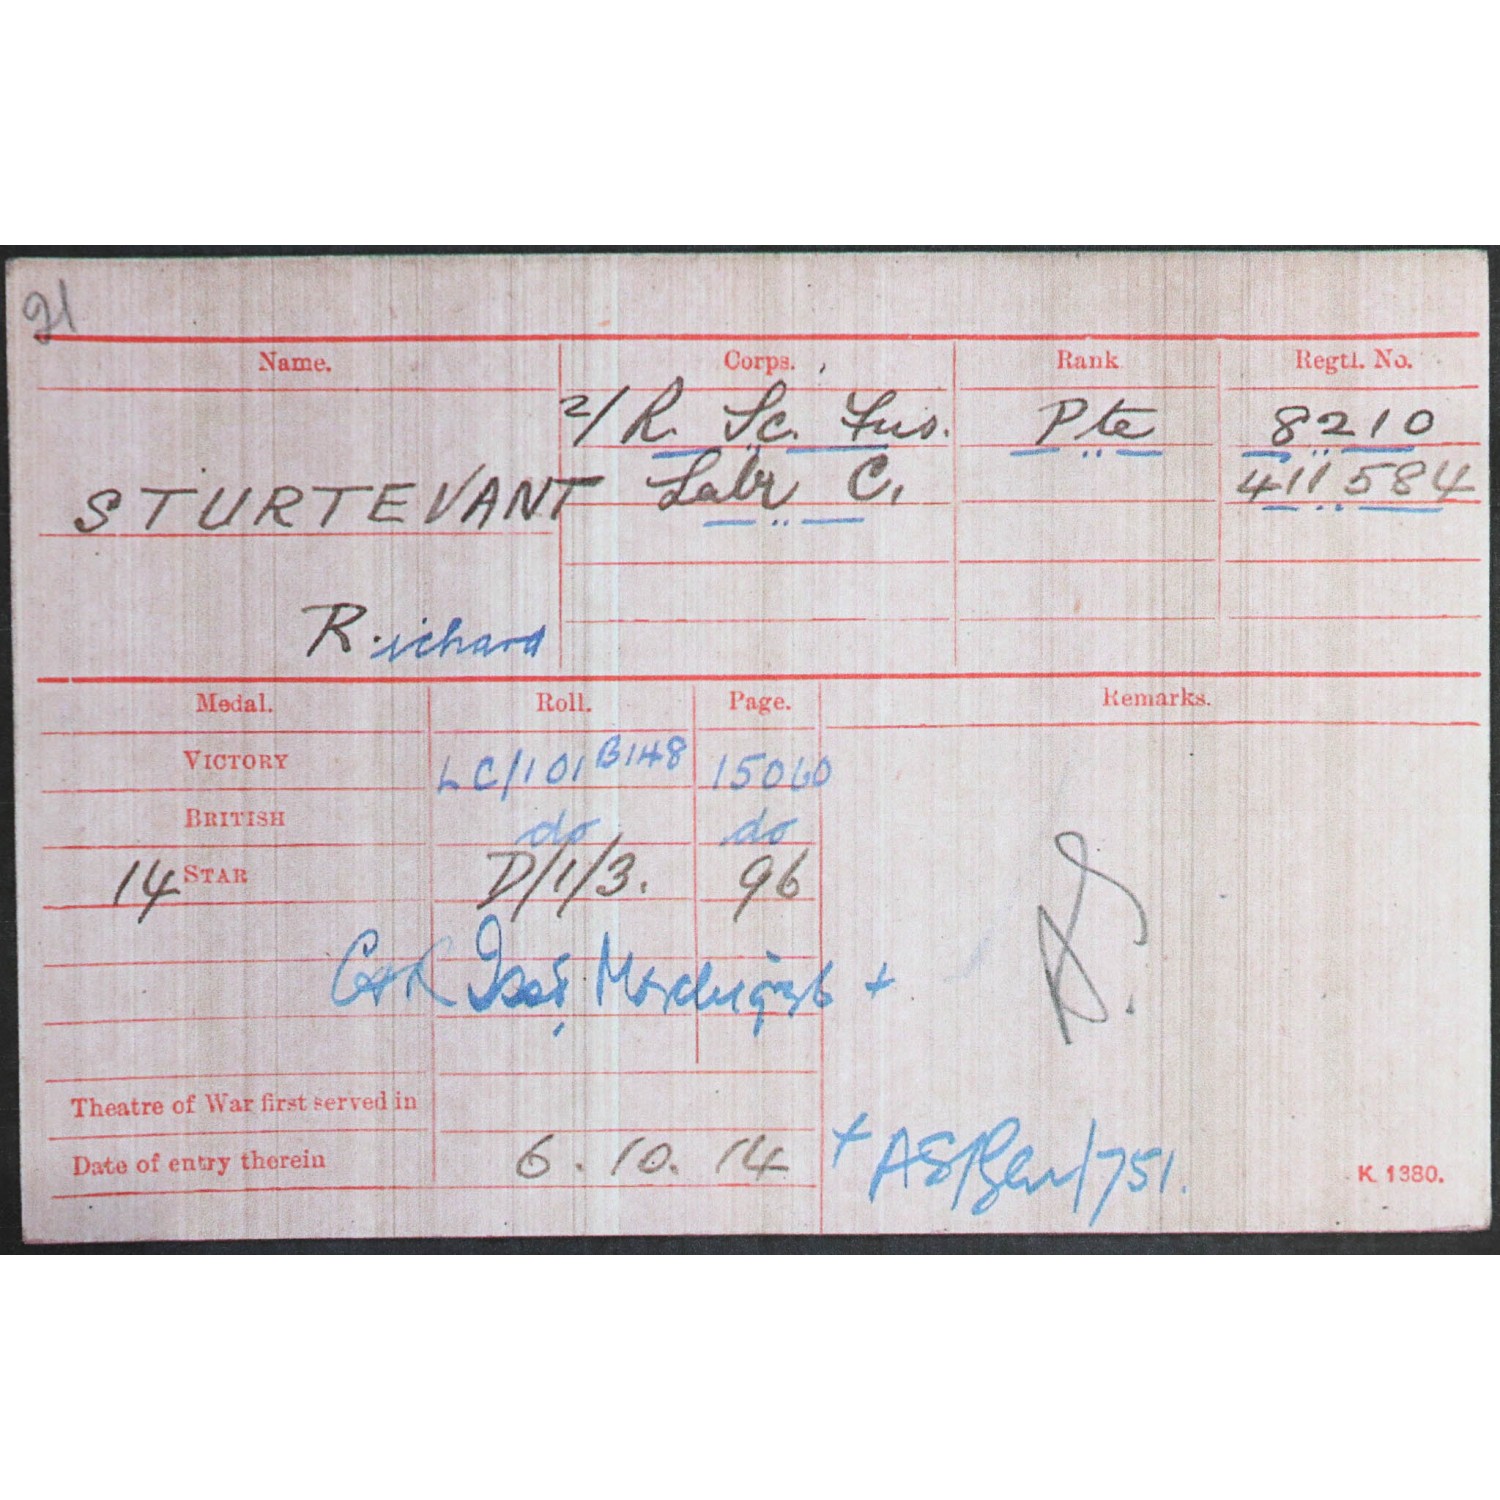 21
Name. Corps. Rank Regtl. No.
2/R. Sc. Fus. Pte 8210
STURTEVANT Labr C. 411584
R.ichard
Medal. Roll. Page. Remarks.
VICTORY LC/101 B148 15060
BRITISH do do
14 STAR D/1/3. 96
C & R +
Theatre of War first served in
Date of entry therein 6.10.14
+ /751.
K. 1380.